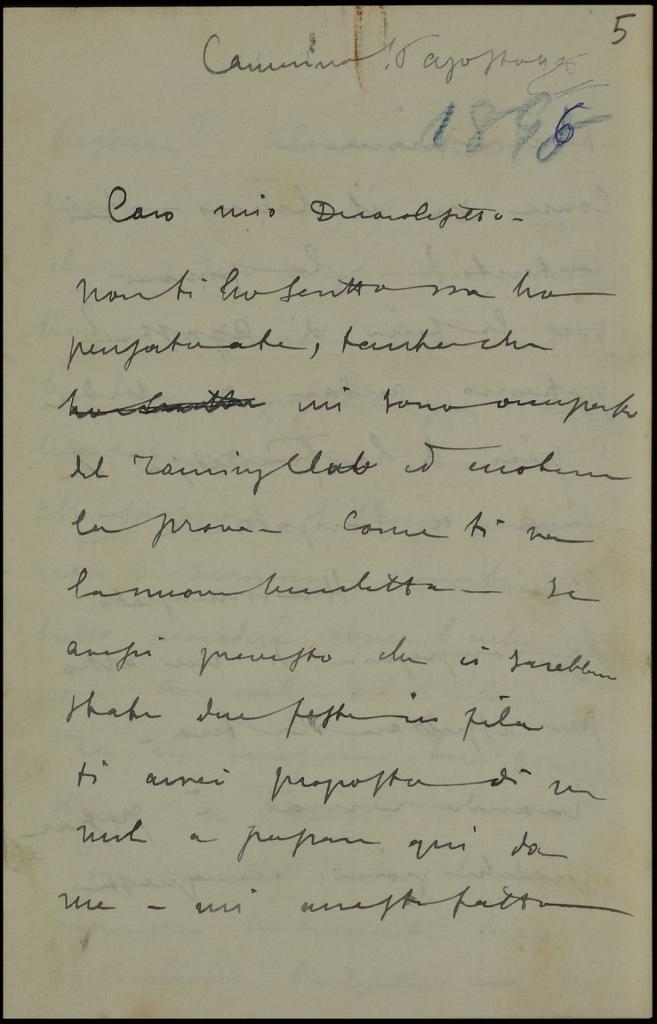 5
Camerino 16 agosto 96
1896
Caro mio
Non ti ho scritto ma ho
pensato a te, tanto che
ho scritto mi sono occupato
del Club ed
la prova - Come ti va
la nuova bicicletta - Se
avessi previsto che ci sarebbero
state due feste in fila
ti avrei proposto di
a passare qui da
me - mi avresti fatto